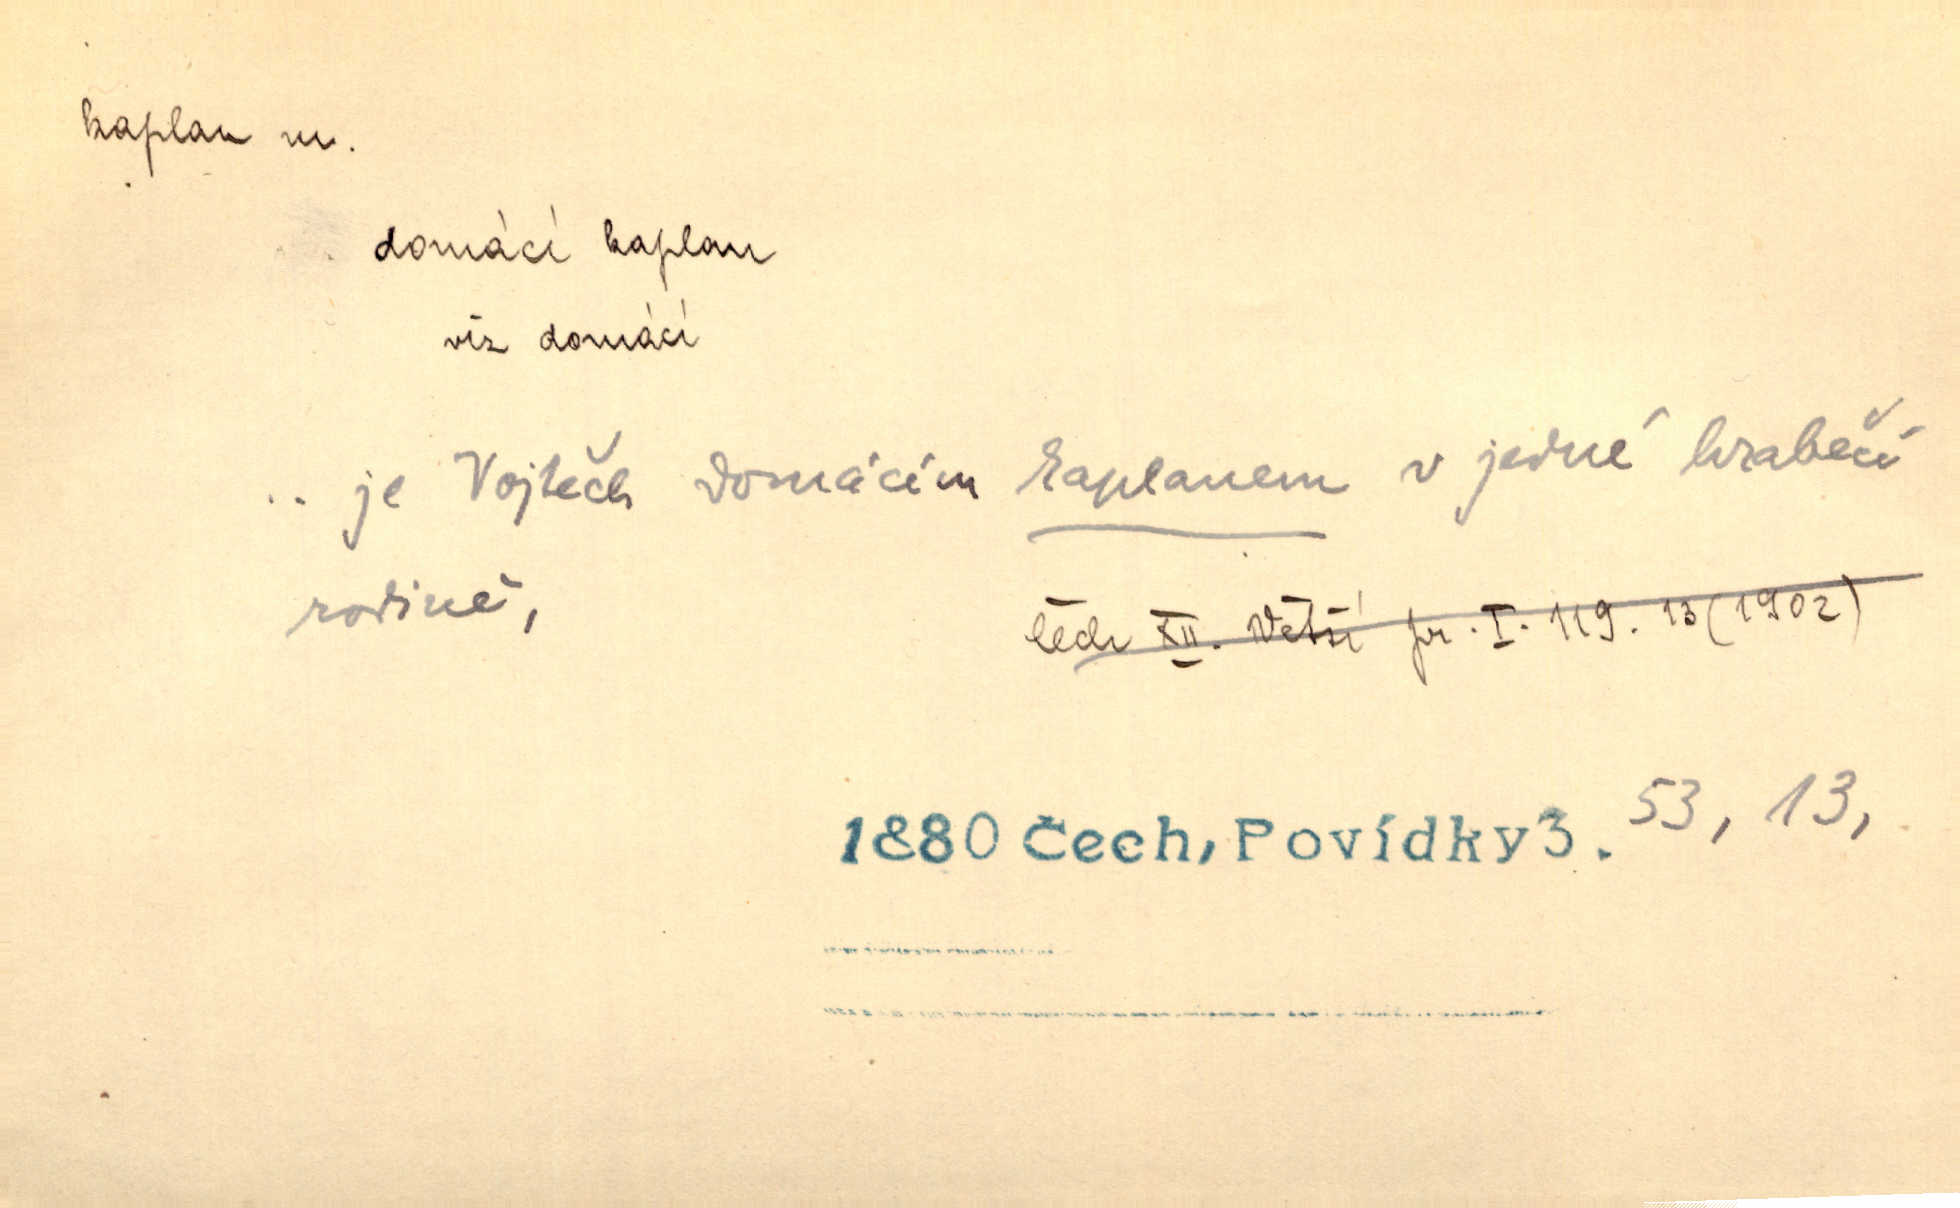 kaplan m.
domácí kaplan
viz domácí
.. je Vojtěch domácím kaplanem v jedné hraběcí
rodině,
Čech XII. Větší pr. I. 119. 13 (1902)
1880 Čech, Povídky 3. 53, 13,